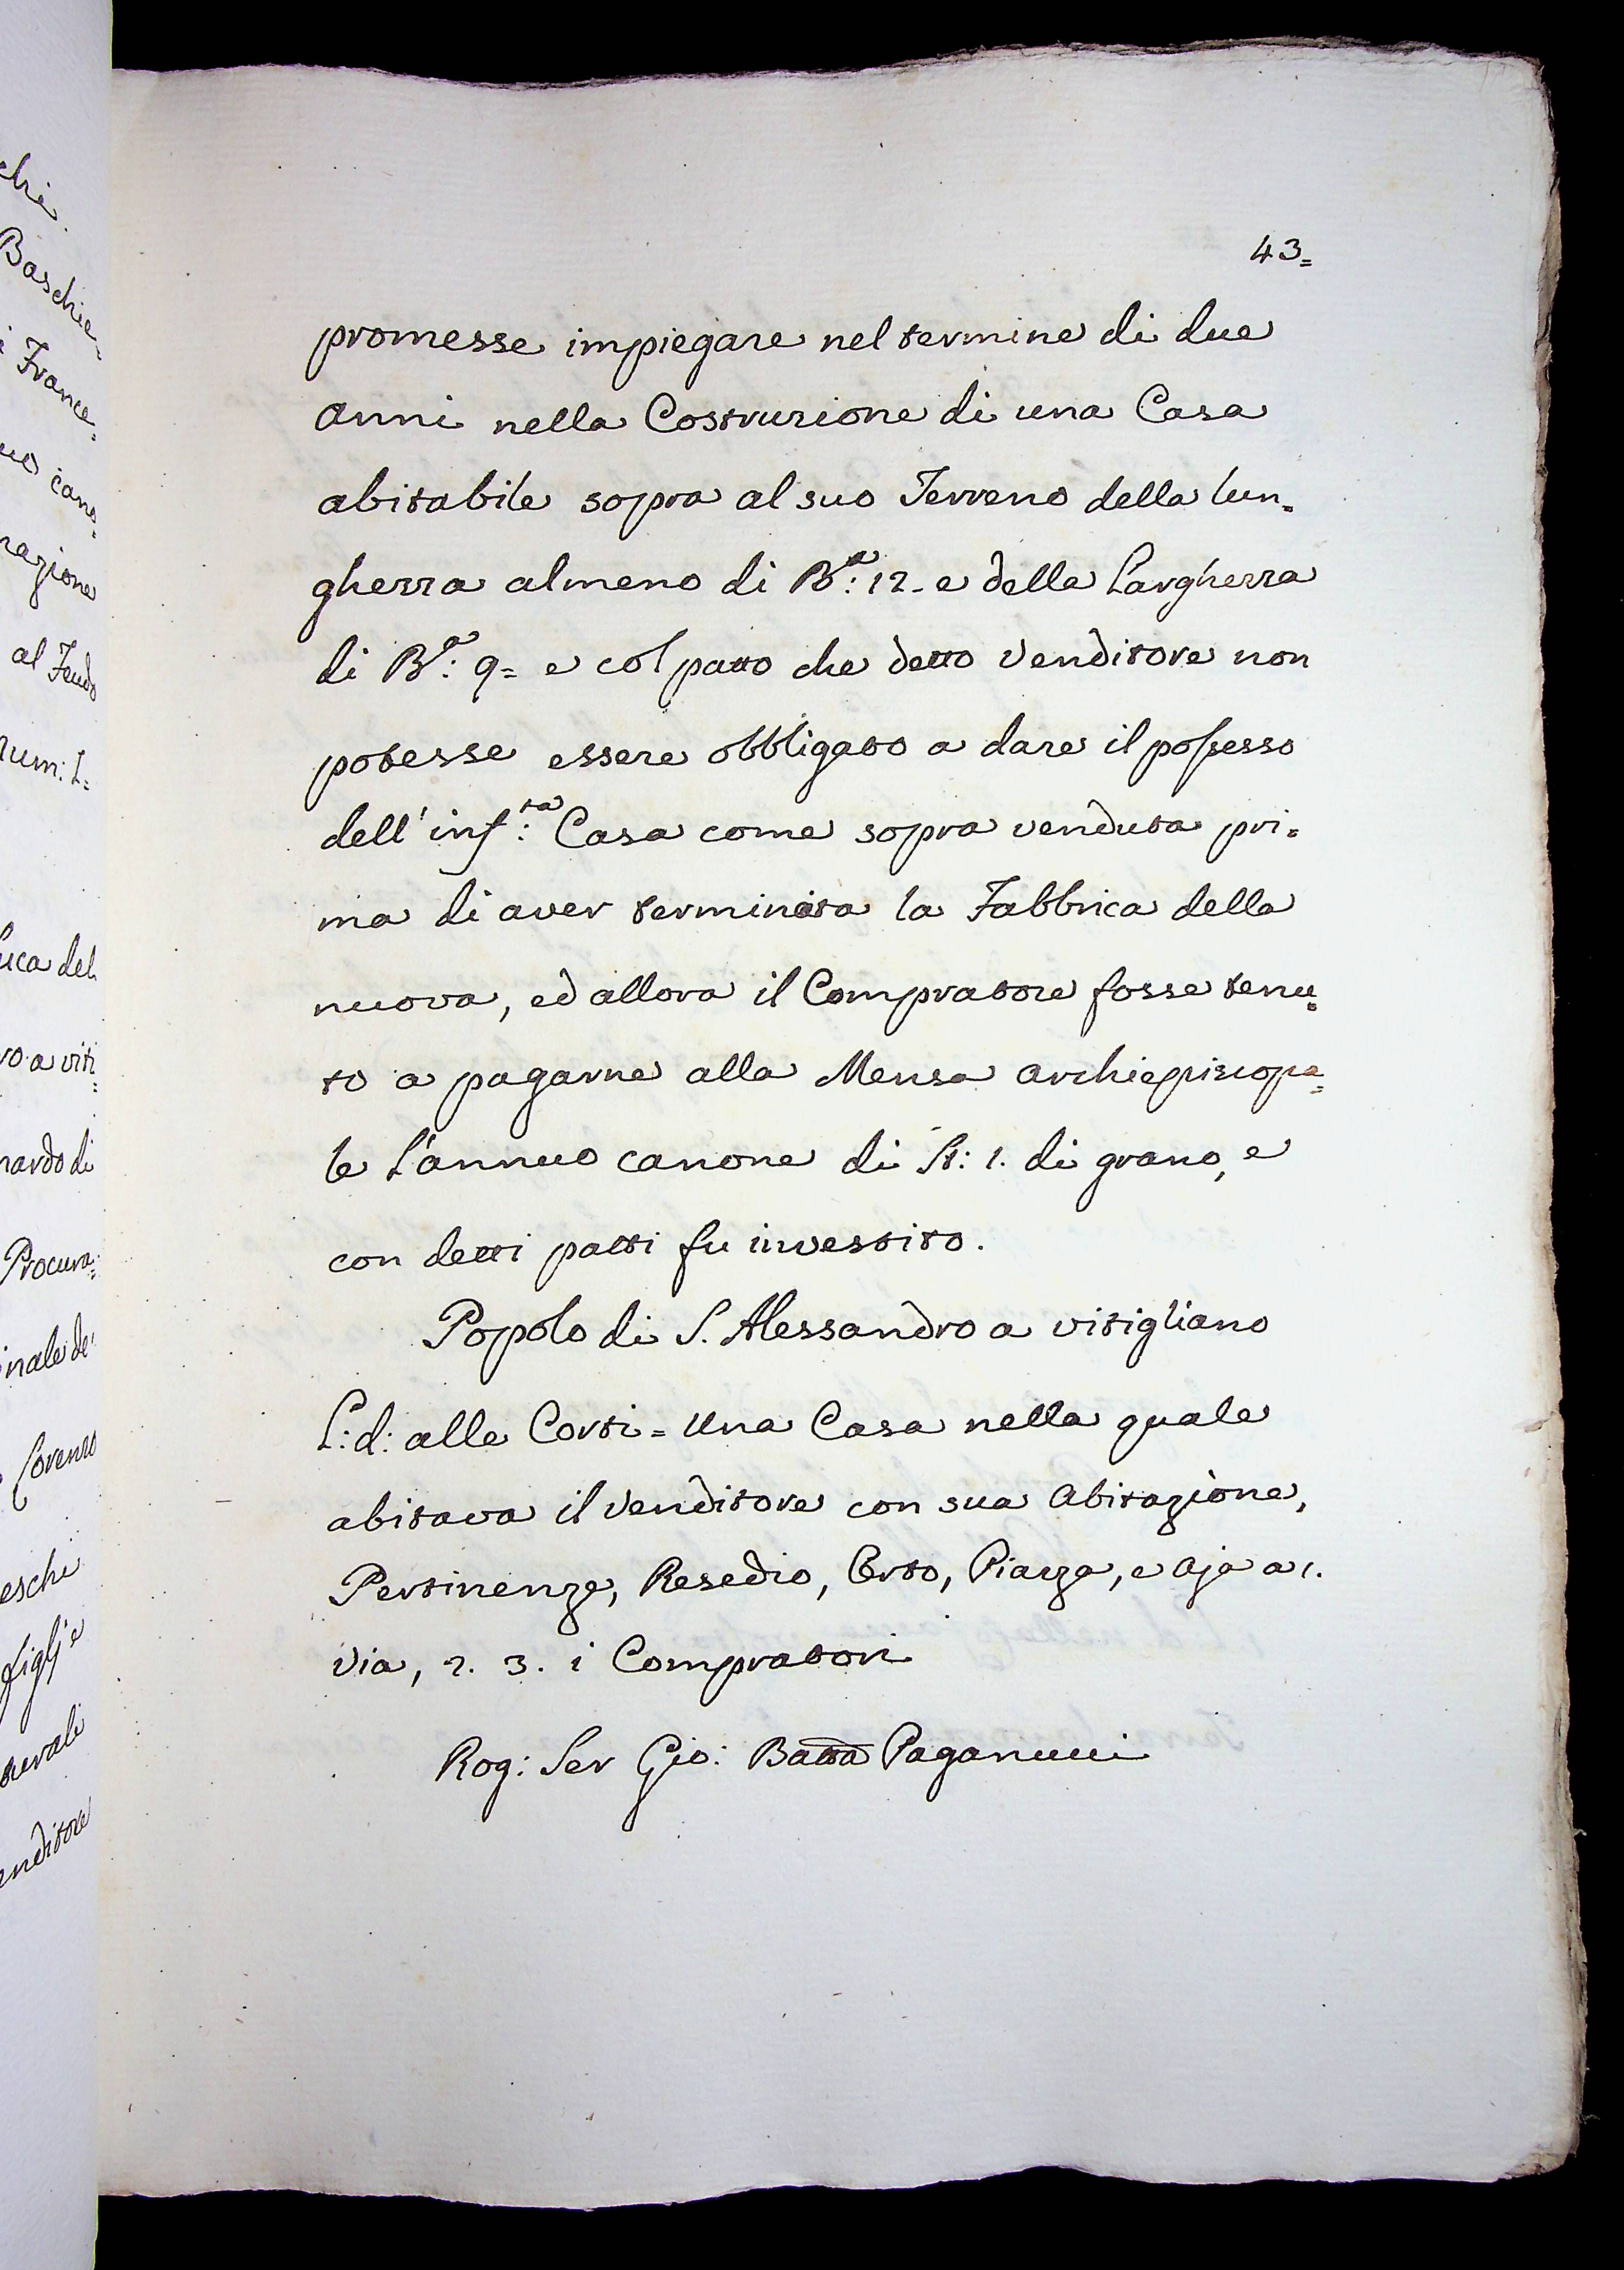 43=
promesse impiegare nel termine di due
anni nella Costruzione di una Casa
abitabile sopra al suo Terreno della lun=
ghezza almeno di B.ª: 12. e della Larghezza
di B.ª: 9= e col patto che detto Venditore non
potesse essere obbligato a dare il possesso
dell' inf:ta Casa come sopra venduta pri=
ma di aver terminata la Fabbrica della
nuova, ed allora il Compratore fosse tenu=
to a pagarne alla Mensa Archiepiscopa=
le L'annuo canone di St: 1. di grano, e
con detti patti fu investito.
Popolo di S. Alessandro a vitigliano
L: d: alle Corti = Una Casa nella quale
abitava il Venditore con sua Abitazione,
Pertinenze, Resedio, Orto, Piazza, e Aja a 1.
Via, 2. 3. i Compratori
Rog: Ser Gio: Batta Paganucci
Baschie=
France=
cano=
razione
al Feudo
num: L=
uca del
ro a viti=
nardo di
Procura=
inale de'
Lorenzo
eschi
figlj e
enditore